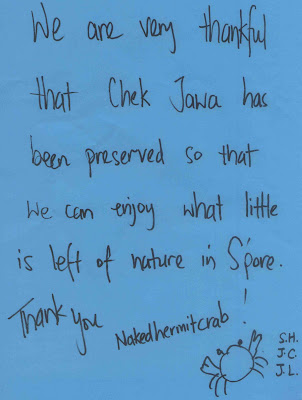 We are very thankful
that Chek Jawa has
been preserved so that
we can enjoy what little
is left of nature in S'pore.
Thank you Nakedhermitcrab!
S.H.
J.C.
J.L.